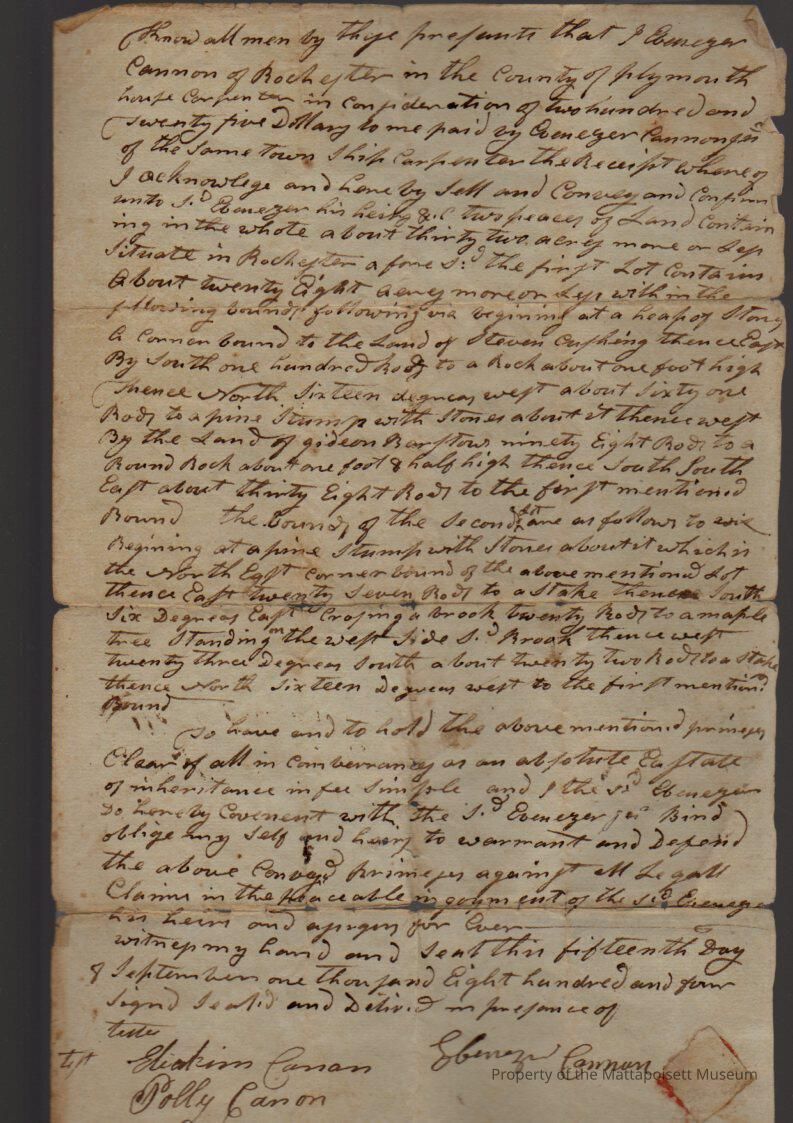 Know all men by these presents that I Ebenezer
Cannon of Rochester in the County of plymouth
house Carpenter in consideration of two hundred and
Twenty five Dollars to me paid by Ebenezer Cannon jur
of the Same town Ship Carpenter the Receipt whereof
I acknowlege and here by Sell and Convey and Confirm
unto Sd Ebenezer his heirs &c two peaces of Land Contain
ing in the whole about thirty two acres more or Less
Situate in Rochester afore Sd the first Lot Contains
About twenty Eight acres more or Less with in the
following bounds following viz begining at a heap of Stons
A Corner bound to the Land of Steven Cushing thence East
By South one hundred Rods to a Rock about one foot high
Thence North Sixteen degrees west about Sixty one
Rods to a pine Stump with Stones about it thence west
By the Land of gideon Barstow ninety Eight Rods to a
Round Rock about one foot & half high thence South South
East about thirty Eight Rods to the first mentioned
Bound the bounds of the Second Lot are as follows to wit
Begining at a pine Stump with Stones about it which is
the North East corner bound of the above mentiond Lot
thence East twenty Seven Rods to a Stake thence South
Six Degrees East Crosing a brook twenty Rods to a maple
tree Standing on the west Side Sd Brook thence west
twenty three Degrees South about twenty two Rods to a Stake
thence North Sixteen Degrees west to the first mentiond
Bound
To have and to hold the above mentioned primeses
Clear of all incomberrances as an absolute Eastate
of inheritance in fee Simple and I the Sd Ebenezer
Do hereby Covenent with the Sd Ebenezer jur Bind
oblige my Self and heirs to warrant and Defend
the above Convayd primeses against all Legall
Claims in the peaceable injoyment of the Sd Ebeneze
his heirs and assigns for Ever
witness my hand and Seal this fifteenth Day
of September one thousand Eight hundred and four
Signd Seald and Deliverd in presance of
Test Eliakim Canan
Ebenezer Cannon
Polly Canon
Property of the Mattapoisett Museum